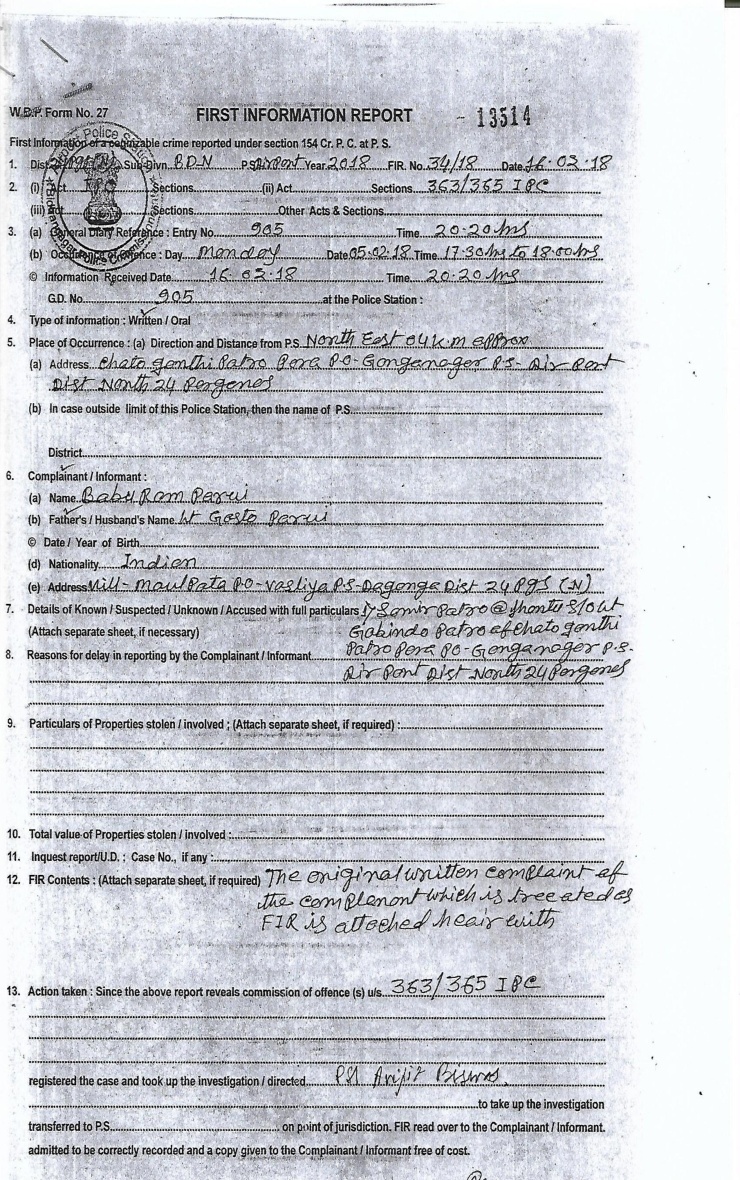 W.B.P. Form No. 27 FIRST INFORMATION REPORT - 13514
First Information of a cognizable crime reported under section 154 Cr. P. C. at P. S.
1. Dist. Sub-Divn. B.D.N P.S. Airport Year 2018 FIR. No. 34/18 Date 16.02.18
2. (i) Act Sections (ii) Act Sections 363/365 IPC
(iii) Act Sections Other Acts & Sections
3. (a) General Diary Reference : Entry No. 905 Time 20.20 hrs
(b) Occurrence of Offence : Day Monday Date 05.02.18 Time 17.30 hrs to 18.00 hrs
© Information Received Date 16.02.18 Time 20.20 hrs
G.D. No. 905 at the Police Station :
4. Type of information : Written / Oral
5. Place of Occurrence : (a) Direction and Distance from P.S. North East 04 k.m approx
(a) Address Chato gonthi Patro Para P.O- Gonganagor P.S- Air Port
Dist North 24 Pergones
(b) In case outside limit of this Police Station, then the name of P.S.
District
6. Complainant / Informant :
(a) Name Babu Ram Parui
(b) Father's / Husband's Name Lt Gosto Parui
© Date / Year of Birth
(d) Nationality Indian
(e) Address Vill- P.O- P.S- Dist 24 PgS (N)
7. Details of Known / Suspected / Unknown / Accused with full particulars 1) Samir Patro @ Jhontu S/O Lt
(Attach separate sheet, if necessary) Gobindo Patro of Chato gonthi
Patro Para P.O- Gonganagor P.S-
8. Reasons for delay in reporting by the Complainant / Informant
Air Port Dist North 24 Pergones
9. Particulars of Properties stolen / involved ; (Attach separate sheet, if required) :
10. Total value of Properties stolen / involved :
11. Inquest report/U.D. ; Case No., if any :
12. FIR Contents : (Attach separate sheet, if required) The original written complaint of
the complenont which is treeated as
FIR is attached heair with
13. Action taken : Since the above report reveals commission of offence (s) u/s. 363/365 IPC
registered the case and took up the investigation / directed PSI Arijit Biswas
to take up the investigation
transferred to P.S. on point of jurisdiction. FIR read over to the Complainant / Informant.
admitted to be correctly recorded and a copy given to the Complainant / Informant free of cost.